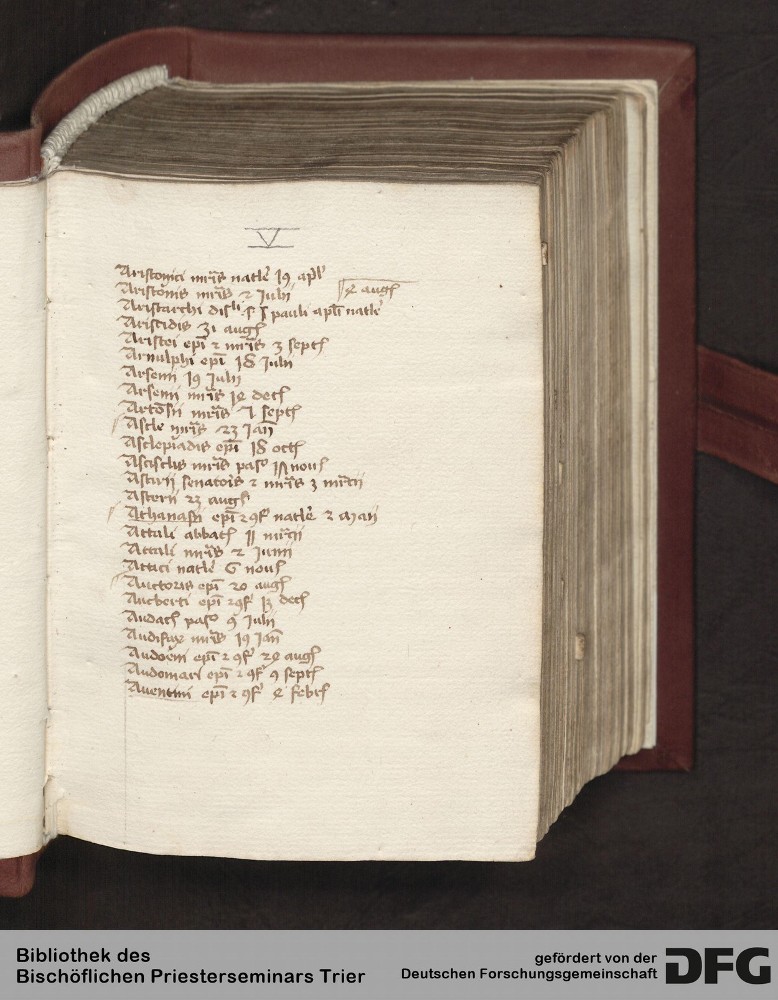 V
Aristonici mr̄is natle 19 apl'
Aristonis mr̄is 2 Julii
Aristarchi discli s pauli apl'i natle 4 augti
Aristidis 31 augti
Aristei ep̄i 2 mr̄is 3 septē
Arnulphi ep̄i 18 Julii
Arsenii 19 Julii
Arsenii mr̄is 14 decē
mr̄is septē
Ascle mr̄is 23 Jan̄
Asclepiadis ep̄i 18 octē
Ascisclis mr̄is pas̄ novē
Astirii senatois 2 mr̄is 3 mr̄cii
Asterii 23 augti
Athanasii ep̄i 2 9f' natle 2 maii
Attali abbatē mr̄cii
Attali mr̄is 2 Junii
Attici natle 6 novē
Auctoris ep̄i 20 augti
Aucberti ep̄i 2 9f' 13 decē
Audacē pas̄ 9 Julii
Audifax mr̄is 19 Jan̄
Audoeni ep̄i 2 9f' 24 augti
Audomari ep̄i 2 9f' 9 septē
Auentini ep̄i 2 9f' 4 febrē
Bibliothek des
Bischöflichen Priesterseminars Trier
gefördert von der
Deutschen Forschungsgemeinschaft
DFG